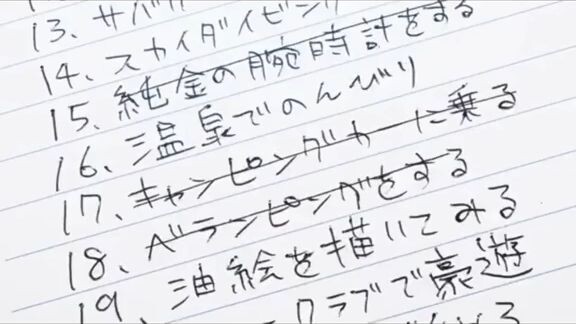 13、サバ
14、スカイダイビング
15、純金の腕時計をする
16、温泉でのんびり
17、キャンピングカーに乗る
18、ベランピングをする
19、油絵を描いてみる
クラブで豪遊